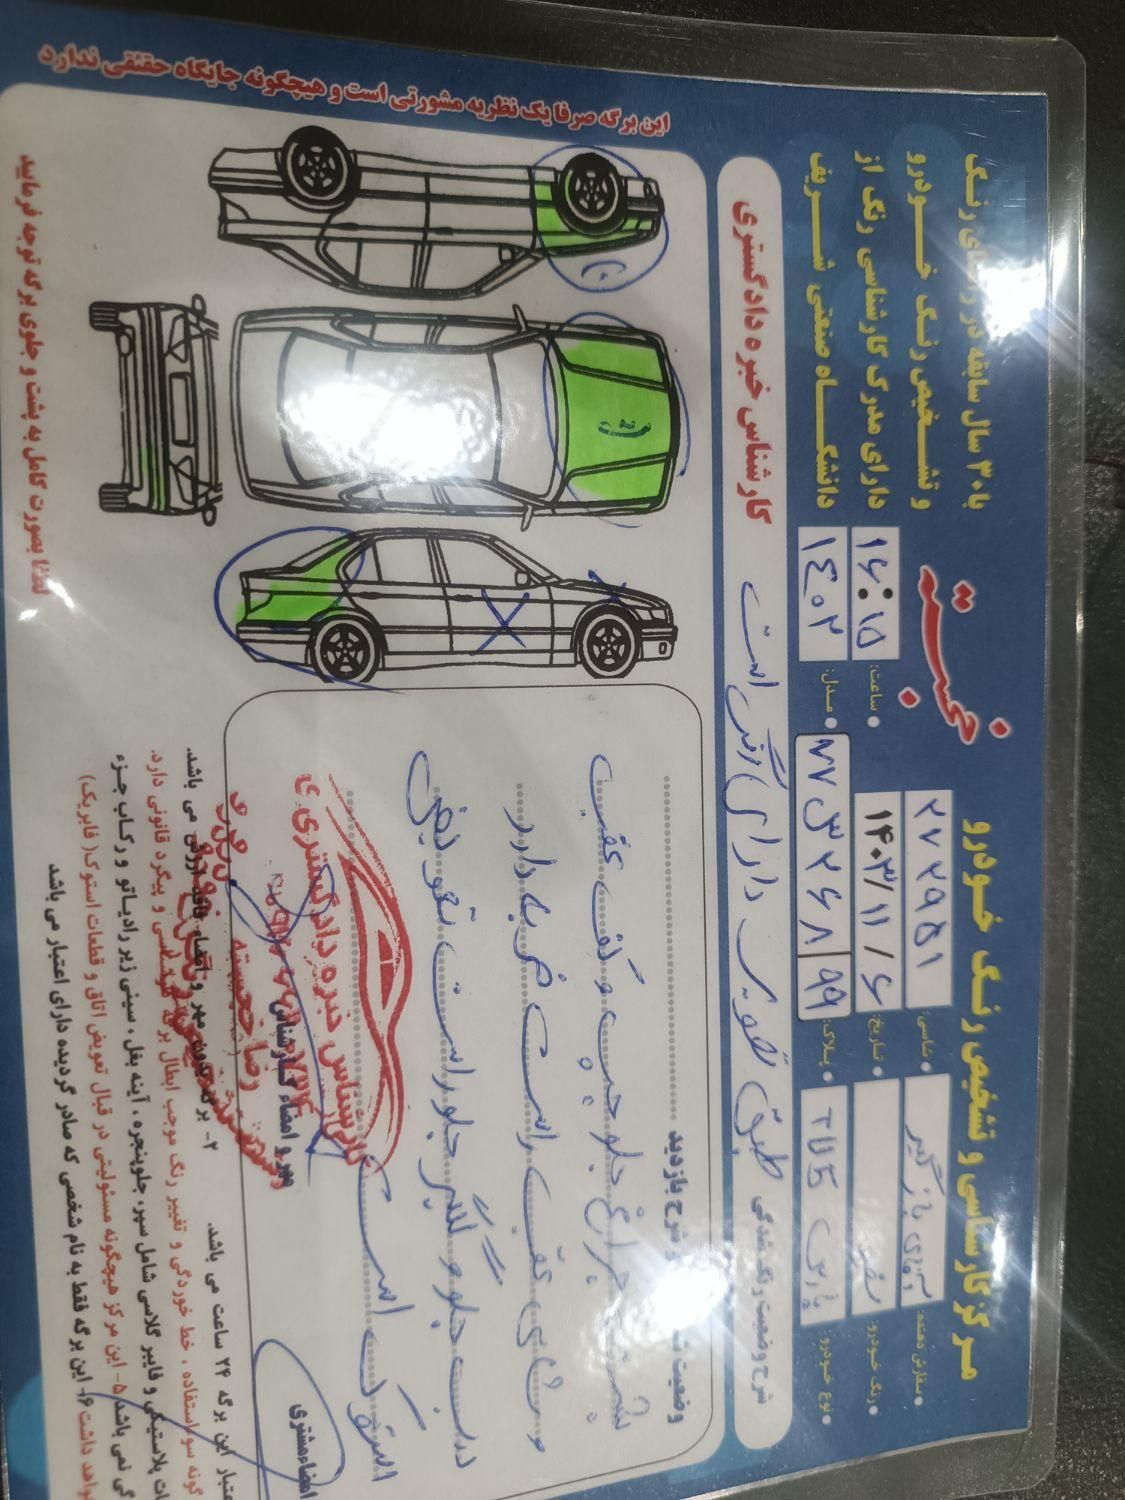 مرکز کارشناسی و تشخیص رنگ خودرو
خبره
با ۳۰ سال سابقه در
و تشخیص رنگ خودرو
دارای مدرک کارشناسی رنگ از
دانشگاه صنعتی شریف
سفارش دهنده: آقای بازگیر
شاسی: ۲۷۲۹۵۸۱
رنگ خودرو: سفید
تاریخ: ۱۴۰۳/۱۱/۶
ساعت: ۱۶:۱۵
نوع خودرو: پارس TU5
پلاک: ۷۷ س ۲۶۸ ۹۹
مدل: ۱۴۰۲
شرح وضعیت رنگ شدگی طبق تصویر دارای رنگ است
کارشناس خبره دادگستری
این برگه صرفا یک نظریه مشورتی است و هیچگونه جایگاه حقیقی ندارد
شرح بازدید
پشت چراغ جلو چپ و کف عقب
شاسی عقب راست ضربه دارد
درب جلو و گلگیر جلو راست تعویض
استوک است
مهر و امضاء کارشناس
کارشناس خبره دادگستری
رضا خجسته
امضاء مشتری
اعتبار این برگه ۲۴ ساعت می باشد.
۲- برگه بدون مهر و امضاء فاقد ارزش می باشد.
گونه سوء استفاده، خط خوردگی و تغییر رنگ موجب ابطال برگه کارشناسی و پیگرد قانونی دارد.
پلاستیکی و فایبر گلاسی شامل سپر، جلوپنجره، آینه بغل، سینی زیر رادیاتو و رکاب جزء
نمی باشد ۵- این مرکز هیچگونه مسئولیتی در قبال تعویض اتاق و قطعات استوک (فابریک)
نخواهد داشت ۶- این برگه فقط به نام شخصی که صادر گردیده دارای اعتبار می باشد
لطفا بصورت کامل به پشت و جلوی برگه توجه فرمایید